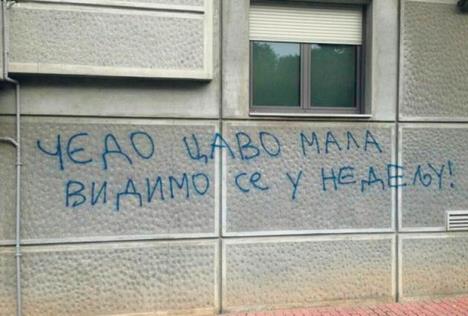 ЧЕДО ЦАВО МАЛА
ВИДИМО СЕ У НЕДЕЉУ!